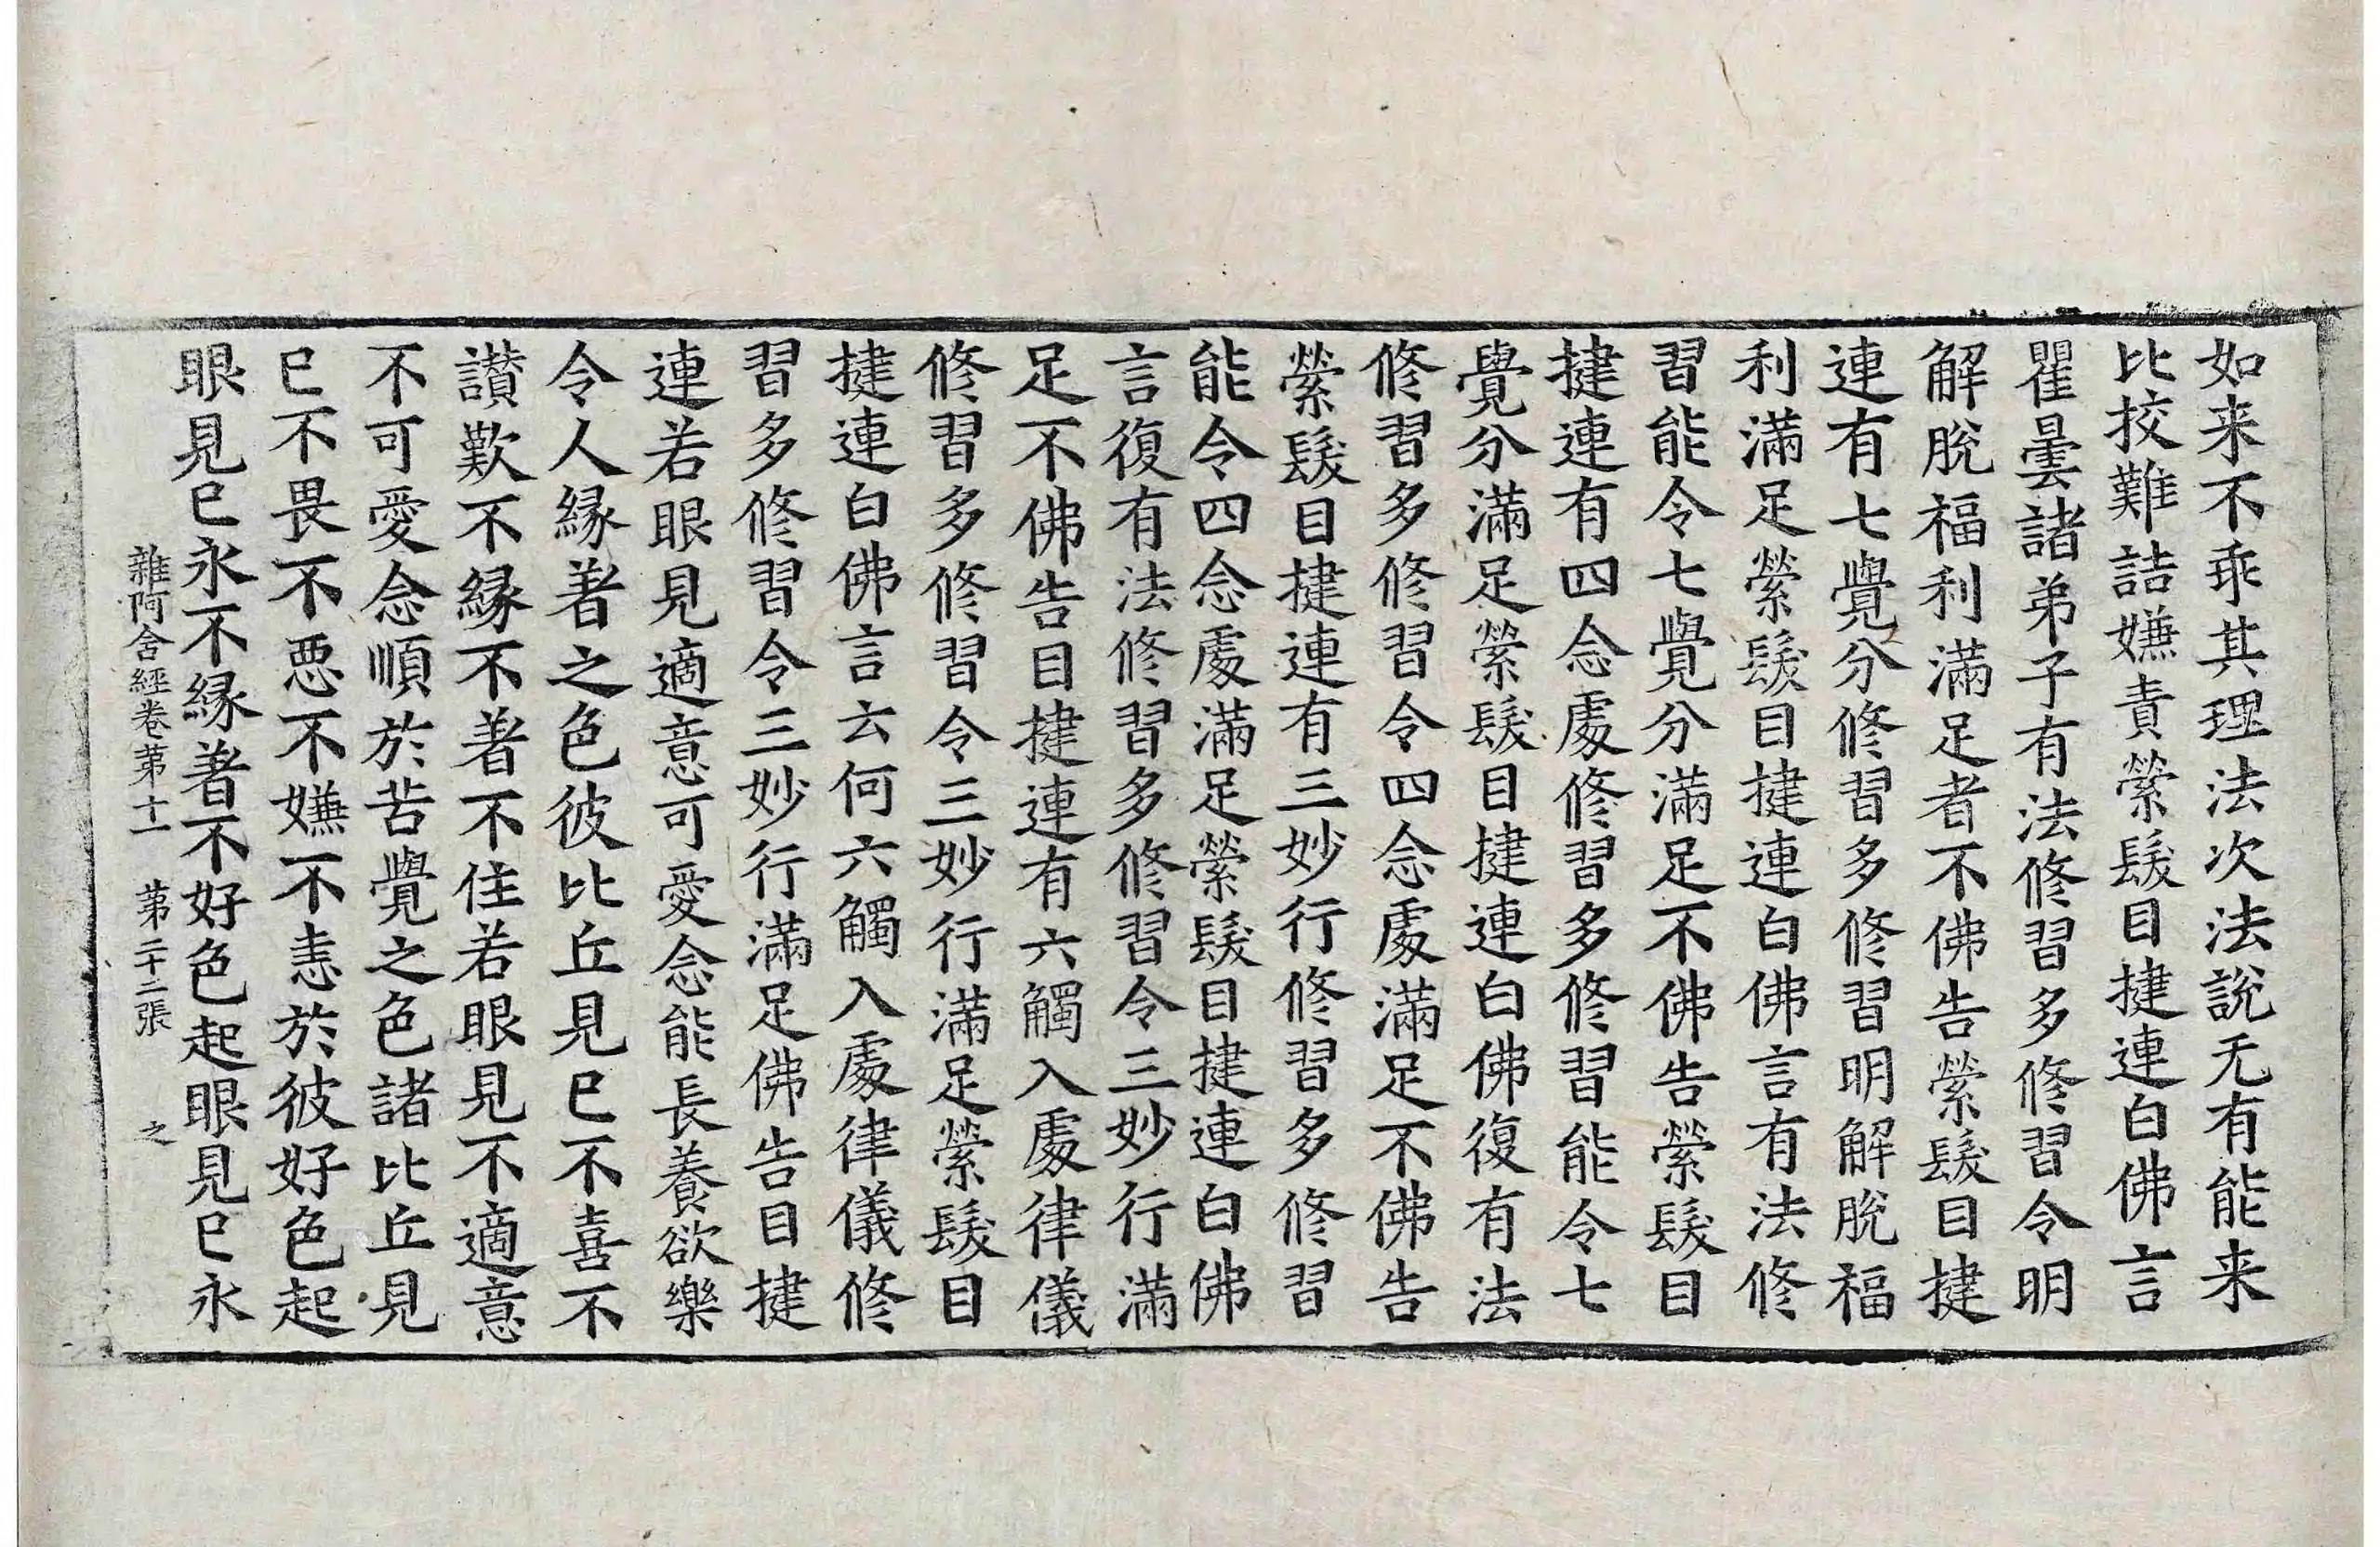 如来不乖其理法次法說无有能来
比挍難詰嫌責縈髮目揵連白佛言
瞿曇諸弟子有法修習多修習令明
解脫福利滿足者不佛告縈髮目揵
連有七覺分修習多修習明解脫福
利滿足縈髮目揵連白佛言有法修
習能令七覺分滿足不佛告縈髮目
揵連有四念處修習多修習能令七
覺分滿足縈髮目揵連白佛復有法
修習多修習令四念處滿足不佛告
縈髮目揵連有三妙行修習多修習
能令四念處滿足縈髮目揵連白佛
言復有法修習多修習令三妙行滿
足不佛告目揵連有六觸入處律儀
修習多修習令三妙行滿足縈髮目
揵連白佛言云何六觸入處律儀修
習多修習令三妙行滿足佛告目揵
連若眼見適意可愛念能長養欲樂
令人緣著之色彼比丘見已不喜不
讃歎不緣不著不住若眼見不適意
不可愛念順於苦覺之色諸比丘見
已不畏不惡不嫌不恚於彼好色起
眼見已永不緣著不好色起眼見已永
雜阿含經卷第十一 第二十二張 之